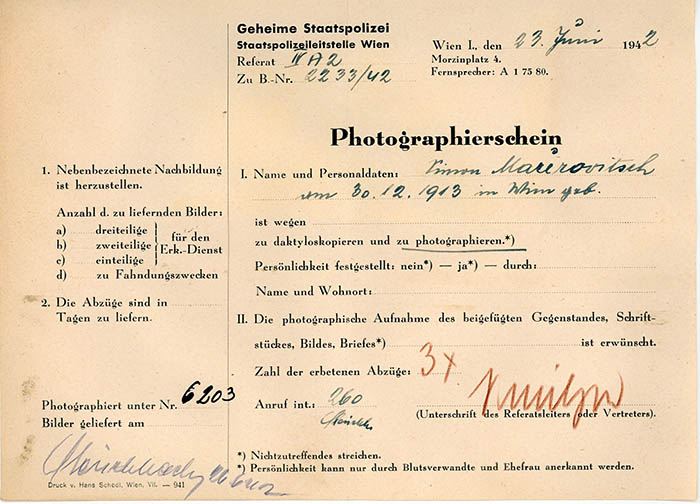 Geheime Staatspolizei
Staatspolizeileitstelle Wien
Referat IV A 2
Zu B.-Nr. 2233/42
Wien I., den 23. Juni 1942
Morzinplatz 4.
Fernsprecher: A 1 75 80.
Photographierschein
1. Nebenbezeichnete Nachbildung
ist herzustellen.
Anzahl d. zu liefernden Bilder:
a) dreiteilige
b) zweiteilige
c) einteilige
für den
Erk.-Dienst
d) zu Fahndungszwecken
2. Die Abzüge sind in
Tagen zu liefern.
Photographiert unter Nr. 6203
Bilder geliefert am
Druck v. Hans Schödl, Wien, VII. — 941
I. Name und Personaldaten: Simon
am 30.12.1913 in Wien geb.
ist wegen
zu daktyloskopieren und zu photographieren.*)
Persönlichkeit festgestellt: nein*) — ja*) — durch:
Name und Wohnort:
II. Die photographische Aufnahme des beigefügten Gegenstandes, Schrift-
stückes, Bildes, Briefes*) ist erwünscht.
Zahl der erbetenen Abzüge: 3x
Anruf int.: 260
(Unterschrift des Referatsleiters oder Vertreters).
*) Nichtzutreffendes streichen.
*) Persönlichkeit kann nur durch Blutsverwandte und Ehefrau anerkannt werden.